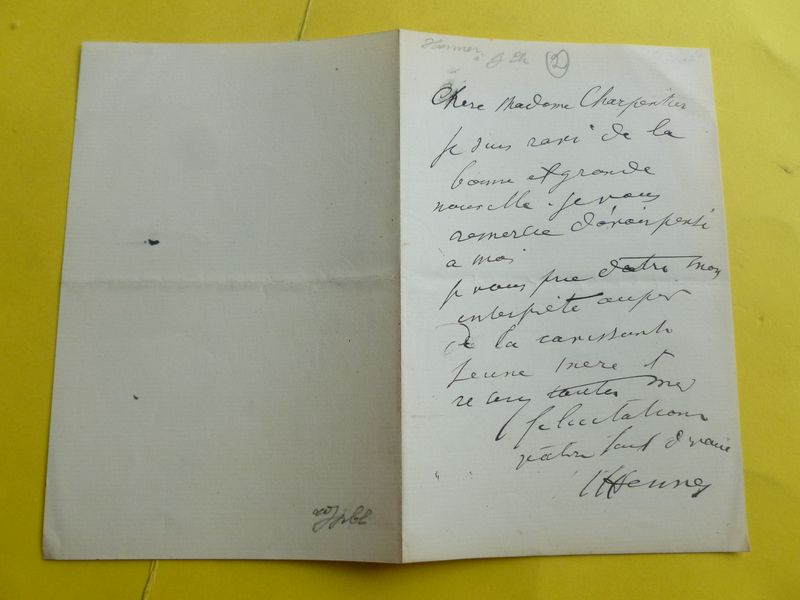 à
2
Chère Madame Charpentier
Je suis ravi de la
bonne et grande
nouvelle. Je vous
remercie d'avoir pensé
à moi
Je vous prie d'être mon
interprète auprès
de la ravissante
jeune mère et
recevez toutes mes
félicitations
votre tout dévoué
JJHenner